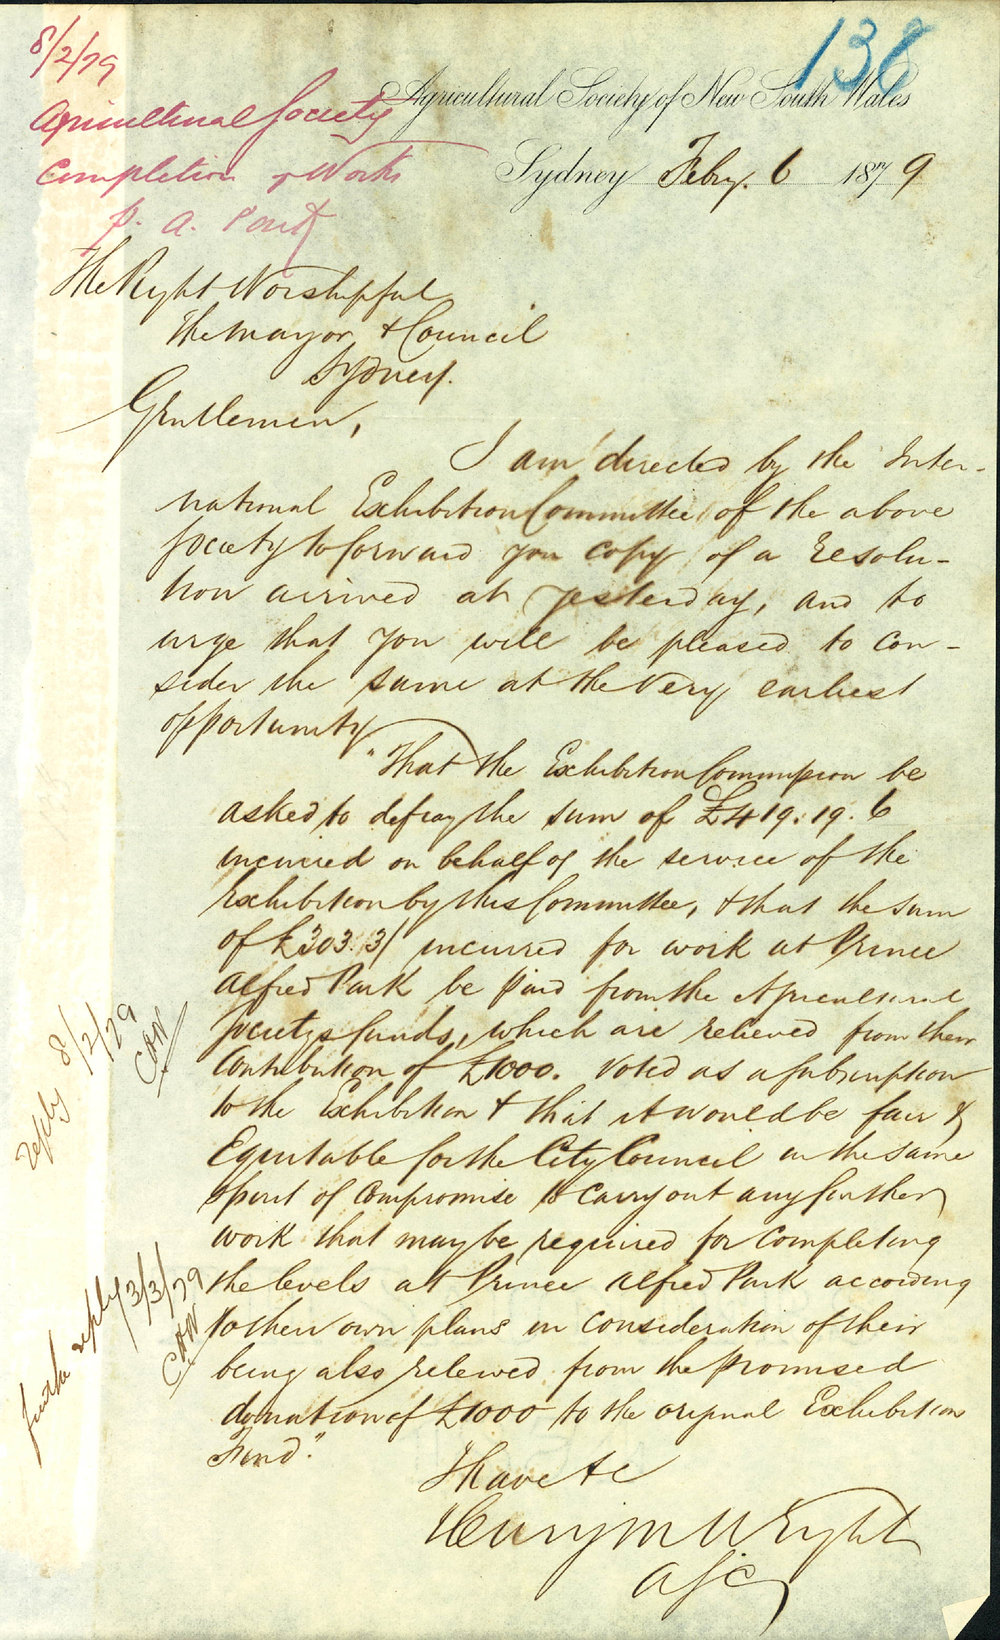 136
8/2/79
Agricultural Society
Completion of Works
P. A. Park
Agricultural Society of New South Wales
Sydney Feby. 6 1879
The Right Worshipful
The Mayor & Council
Sydney.
Gentlemen,
I am directed by the Inter-
national Exhibition Committee of the above
Society to forward you copy of a resolu-
tion arrived at yesterday, and to
urge that you will be pleased to con-
sider the same at the very earliest
opportunity
"That the Exhibition Commission be
asked to defray the sum of £419.19.6
incurred on behalf of the service of the
Exhibition by this Committee, & that the sum
of £303.3/ incurred for work at Prince
Alfred Park be paid from the Agricultural
Societys funds, which are relieved from their
Contribution of £1000. voted as a subscription
to the Exhibition & that it would be fair &
Equitable for the City Council in the same
spirit of compromise to carry out any further
work that may be required for completing
the levels at Prince Alfred Park according
to their own plans in consideration of their
being also relieved from the promised
donation of £1000 to the original Exhibition
Fund."
I have &c
Henry M Wright
A/Sc
reply 8/2/79
CHW
further reply 3/3/79
CHW